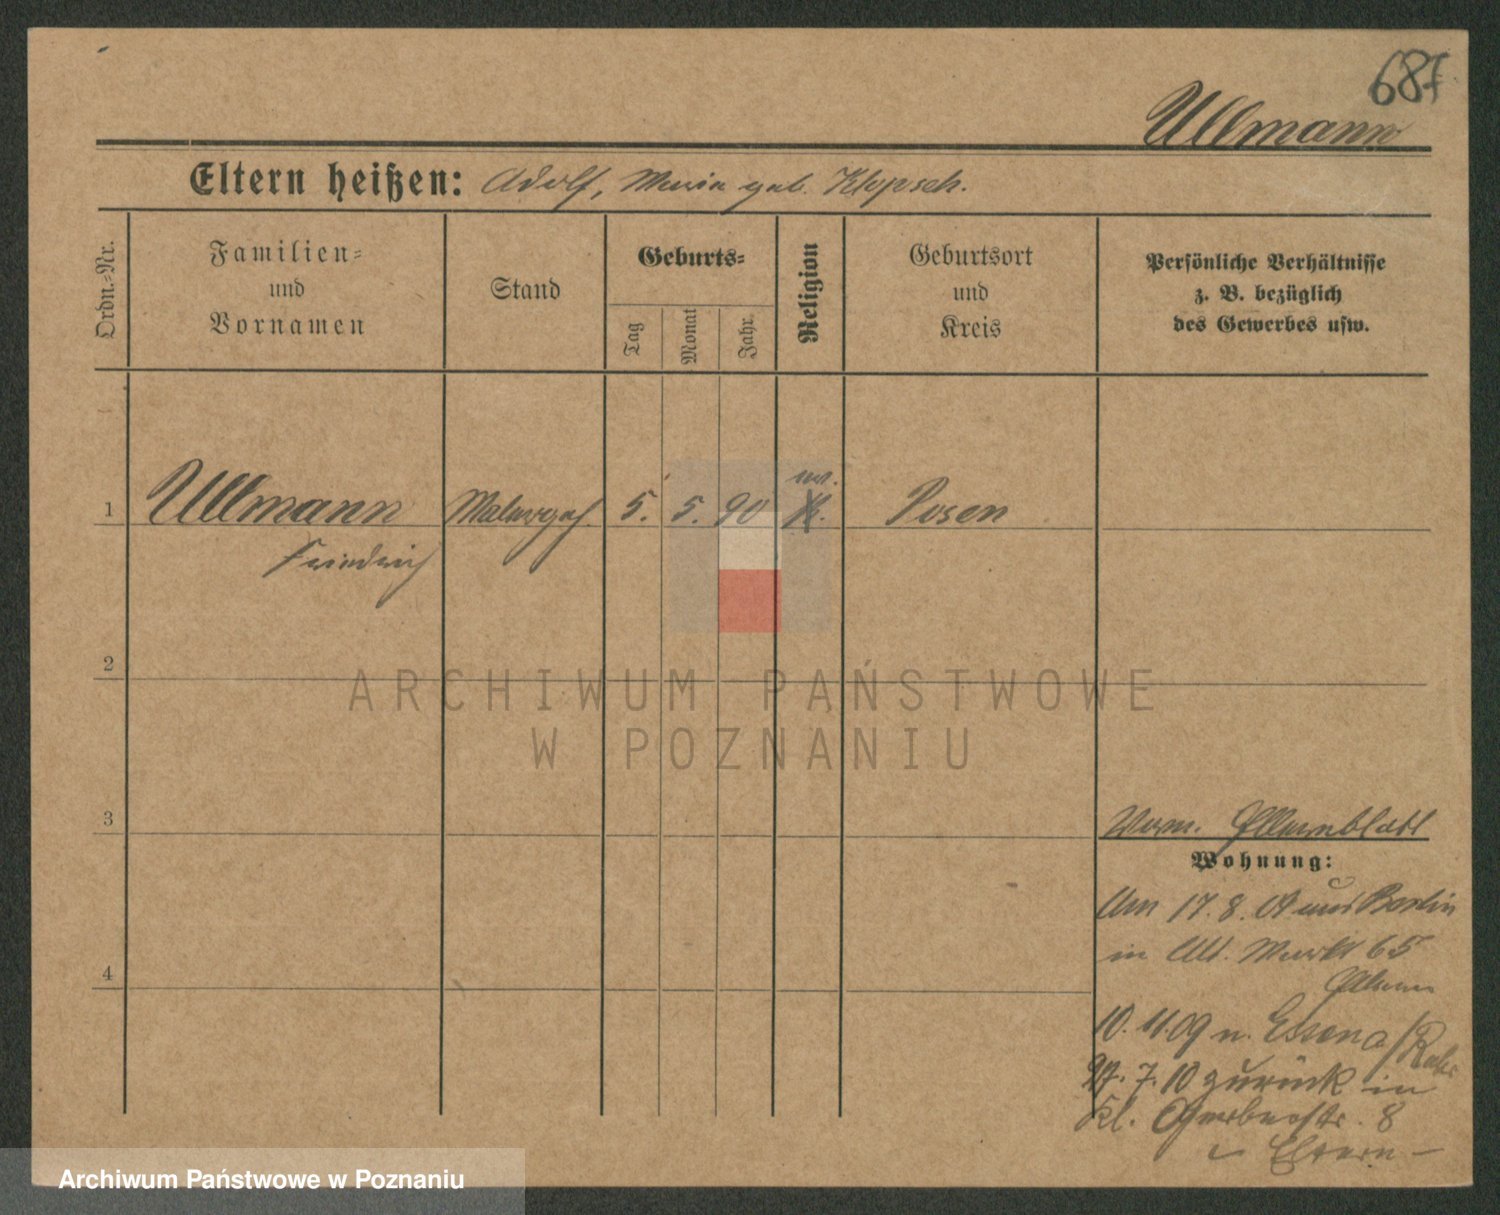 687
Ullmann
Eltern heißen: Adolf, Maria geb. Klopsch.
Ordn.-Nr.
Familien-
und
Vornamen
Stand
Geburts-
Tag
Monat
Jahr.
Religion
Geburtsort
und
Kreis
Persönliche Verhältnisse
z. B. bezüglich
des Gewerbes usw.
ev.
1 Ullmann Malergeh. 5. 5. 90 K. Posen
Friedrich
2
ARCHIWUM PAŃSTWOWE
W POZNANIU
3
Elternblatt
Wohnung:
Am 17. 8. 09 aus Berlin
in Alt. Markt 65
Eltern
4
10. 11. 09 n. Essen a/Ruhr
27. 7. 10 zurück in
Kl. Gerberstr. 8
Eltern –
Archiwum Państwowe w Poznaniu